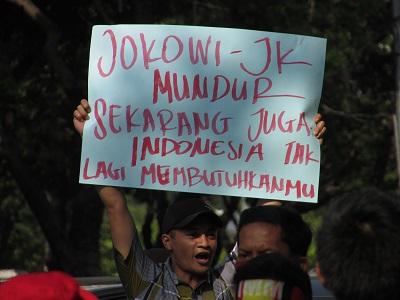 JOKOWI-JK
MUNDUR
SEKARANG JUGA.
INDONESIA TAK
LAGI MEMBUTUHKANMU